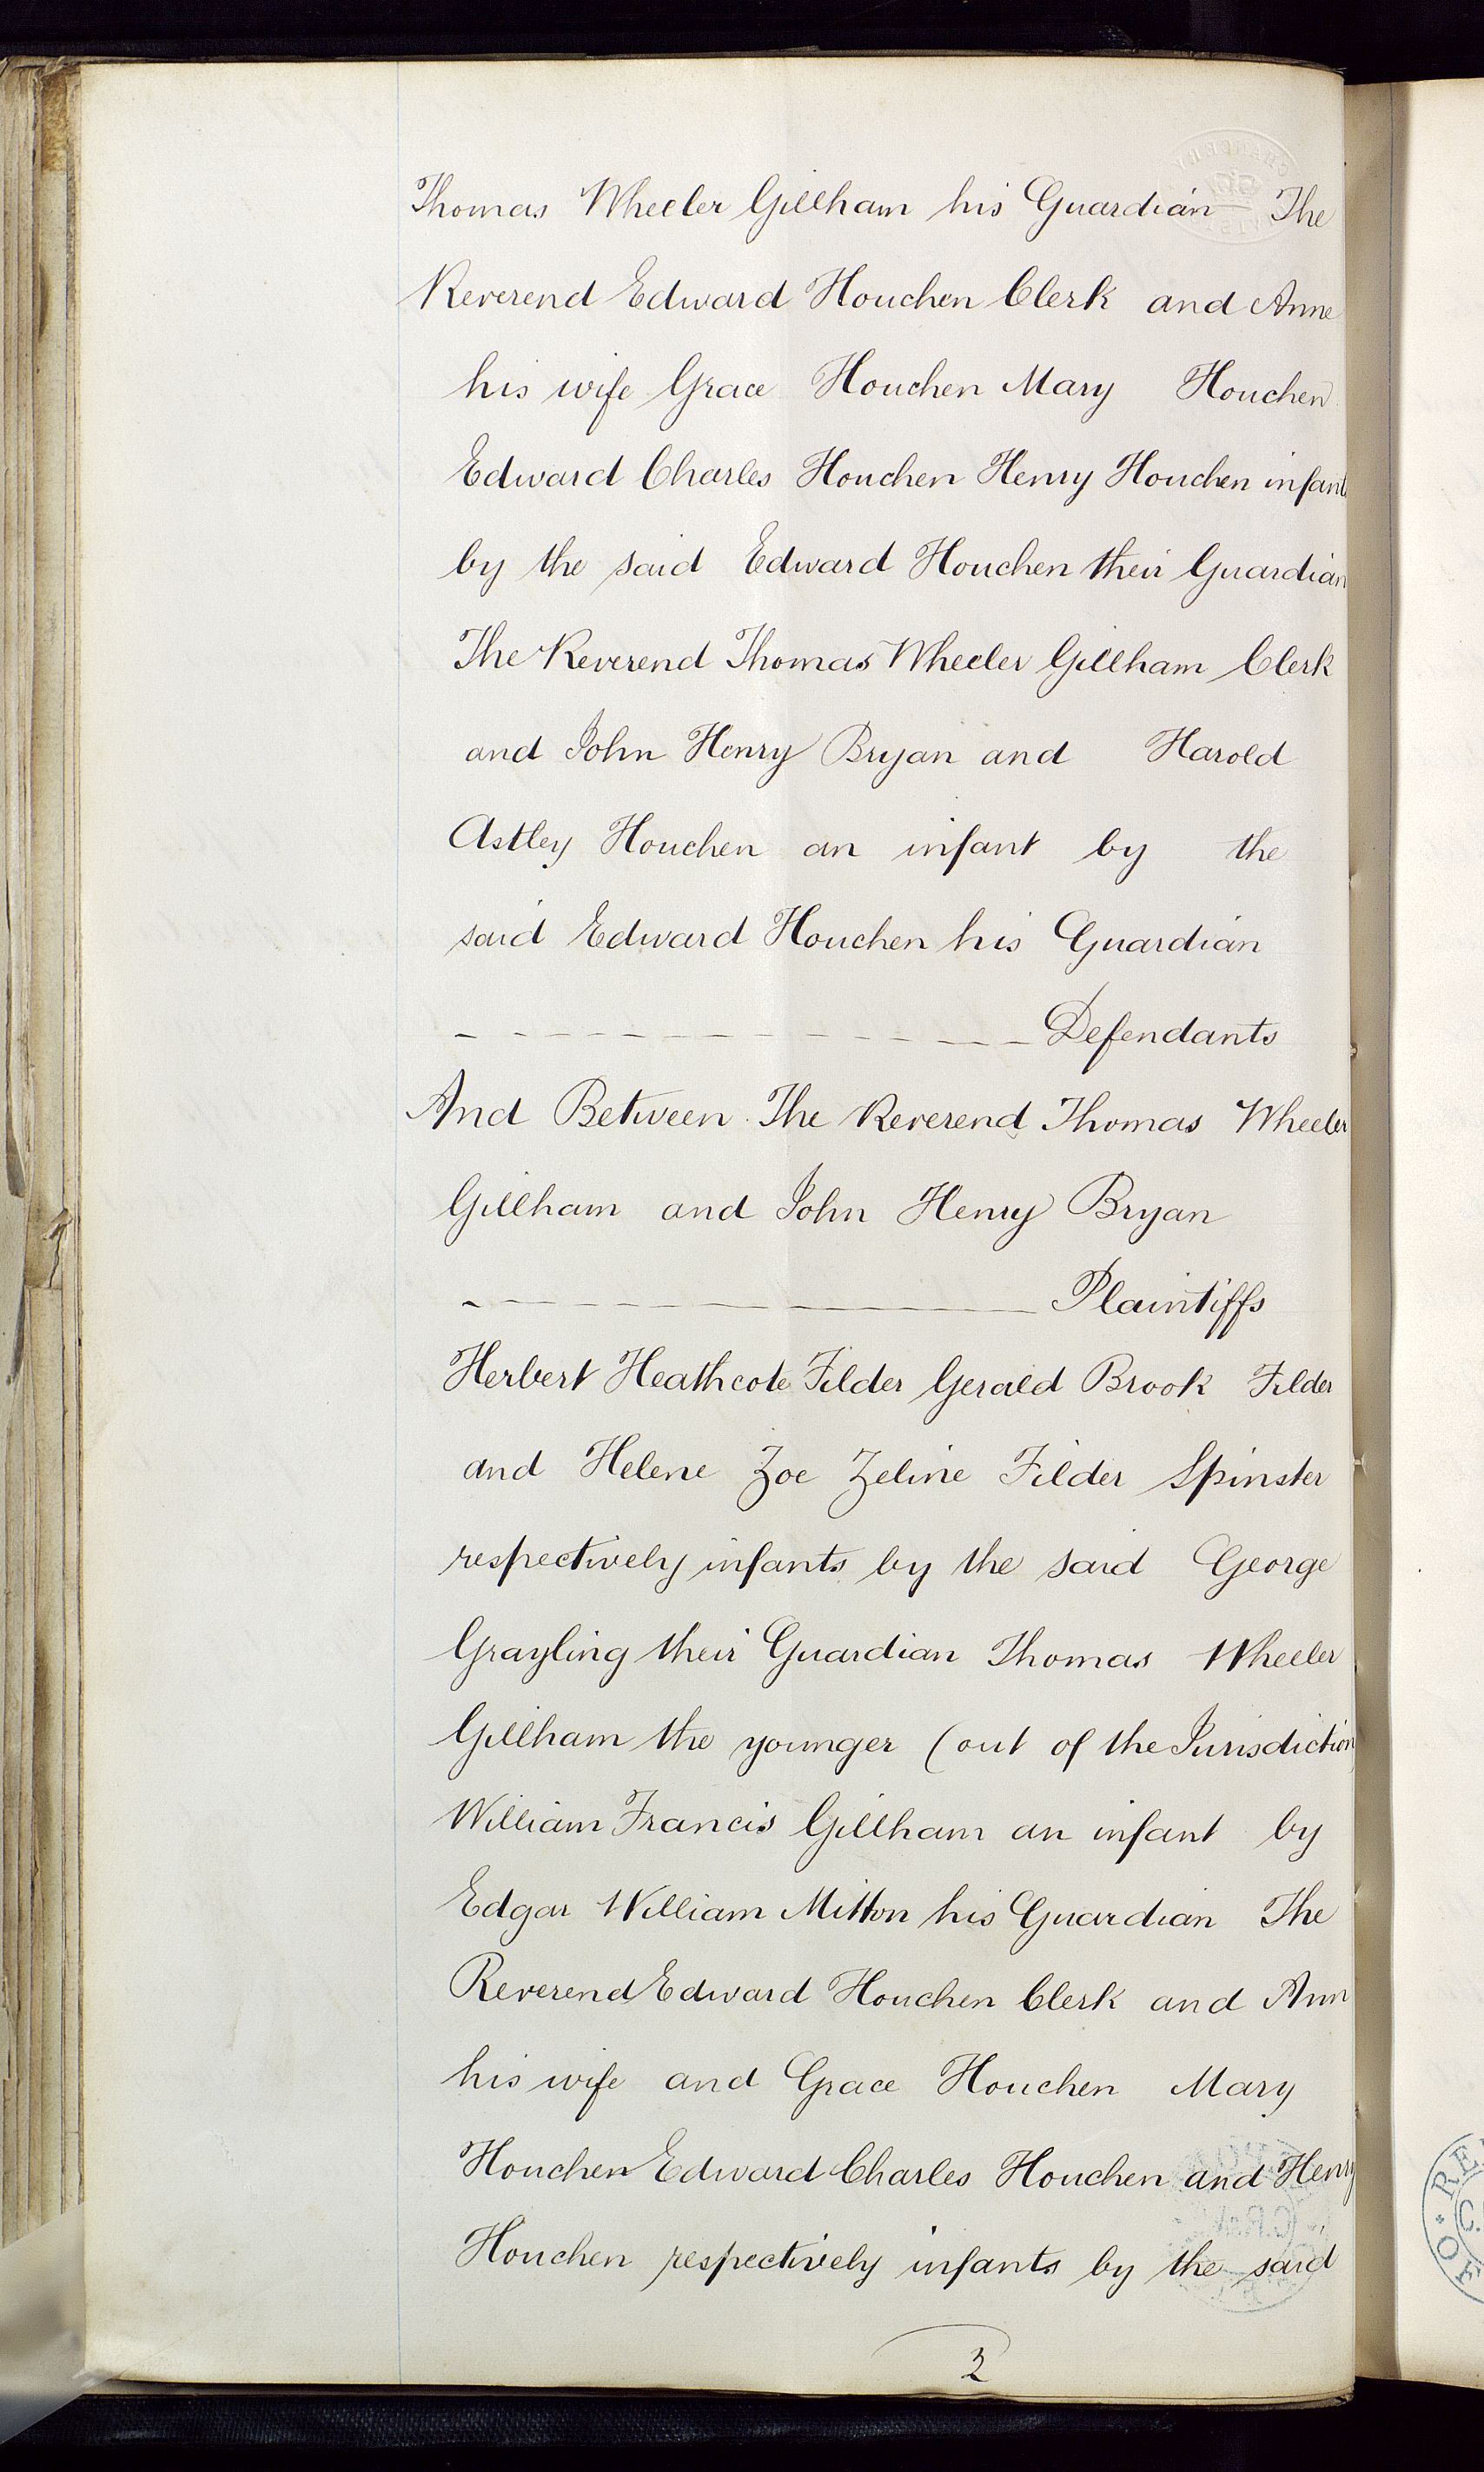 Thomas Wheeler Gillham his Guardian The
Reverend Edward Houchen Clerk and Anne
his wife Grace Houchen Mary Houchen
Edward Charles Houchen Henry Houchen infants
by the said Edward Houchen their Guardian
The Reverend Thomas Wheeler Gillham Clerk
and John Henry Bryan and Harold
Astley Houchen an infant by the
said Edward Houchen his Guardian
Defendants
And Between The Reverend Thomas Wheeler
Gillham and John Henry Bryan
Plaintiffs
Herbert Heathcote Filder Gerald Brook Filder
and Helene Zoe Zeline Filder Spinster
respectively infants by the said George
Grayling their Guardian Thomas Wheeler
Gillham the younger (out of the Jurisdiction
William Francis Gillham an infant by
Edgar William Mitton his Guardian The
Reverend Edward Houchen Clerk and Ann
his wife and Grace Houchen Mary
Houchen Edward Charles Houchen and Henry
Houchen respectively infants by the said
2